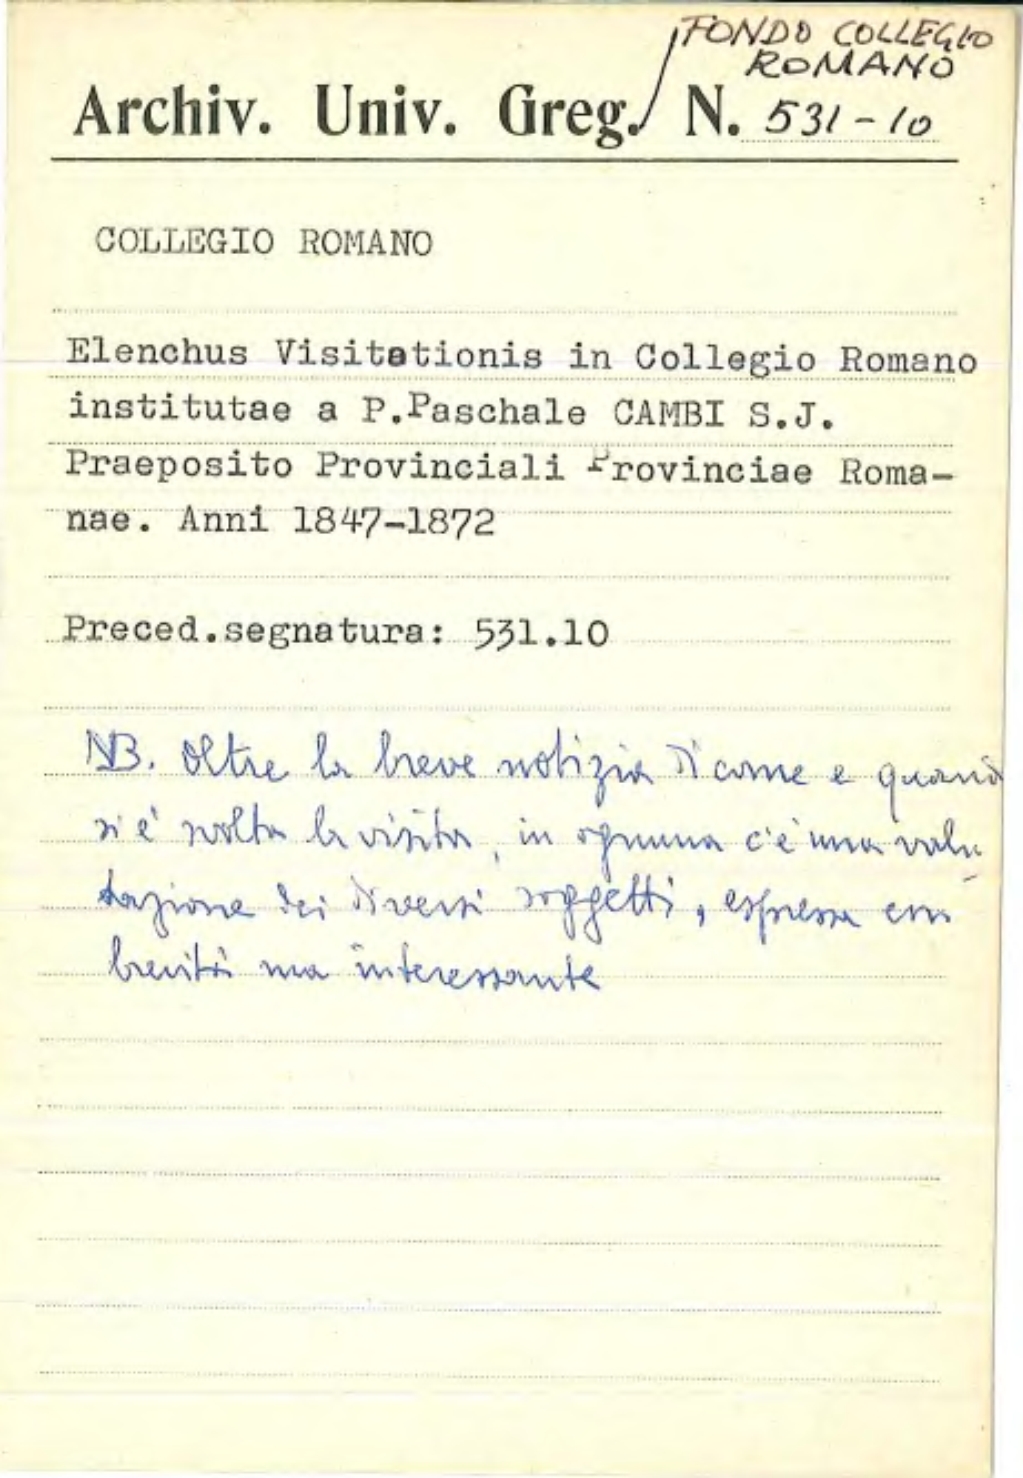 FONDO COLLEGIO
ROMANO
Archiv. Univ. Greg. N. 531-10
COLLEGIO ROMANO
Elenchus Visitationis in Collegio Romano
institutae a P.Paschale CAMBI S.J.
Praeposito Provinciali Provinciae Roma-
nae. Anni 1847-1872
Preced.segnatura: 531.10
NB. Oltre la breve notizia di come e quando
si è svolta la visita, in ognuna c'è una valu
tazione dei diversi soggetti, espressa con
brevità ma interessante